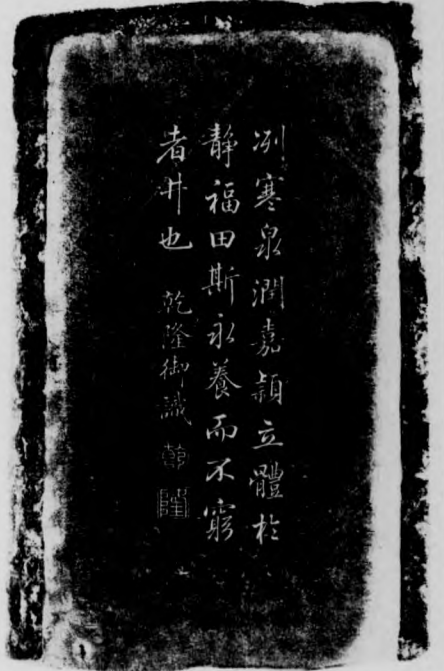 冽寒泉潤嘉穎立體於
靜福田斯永養而不窮
者井也 乾隆御識 乾 隆